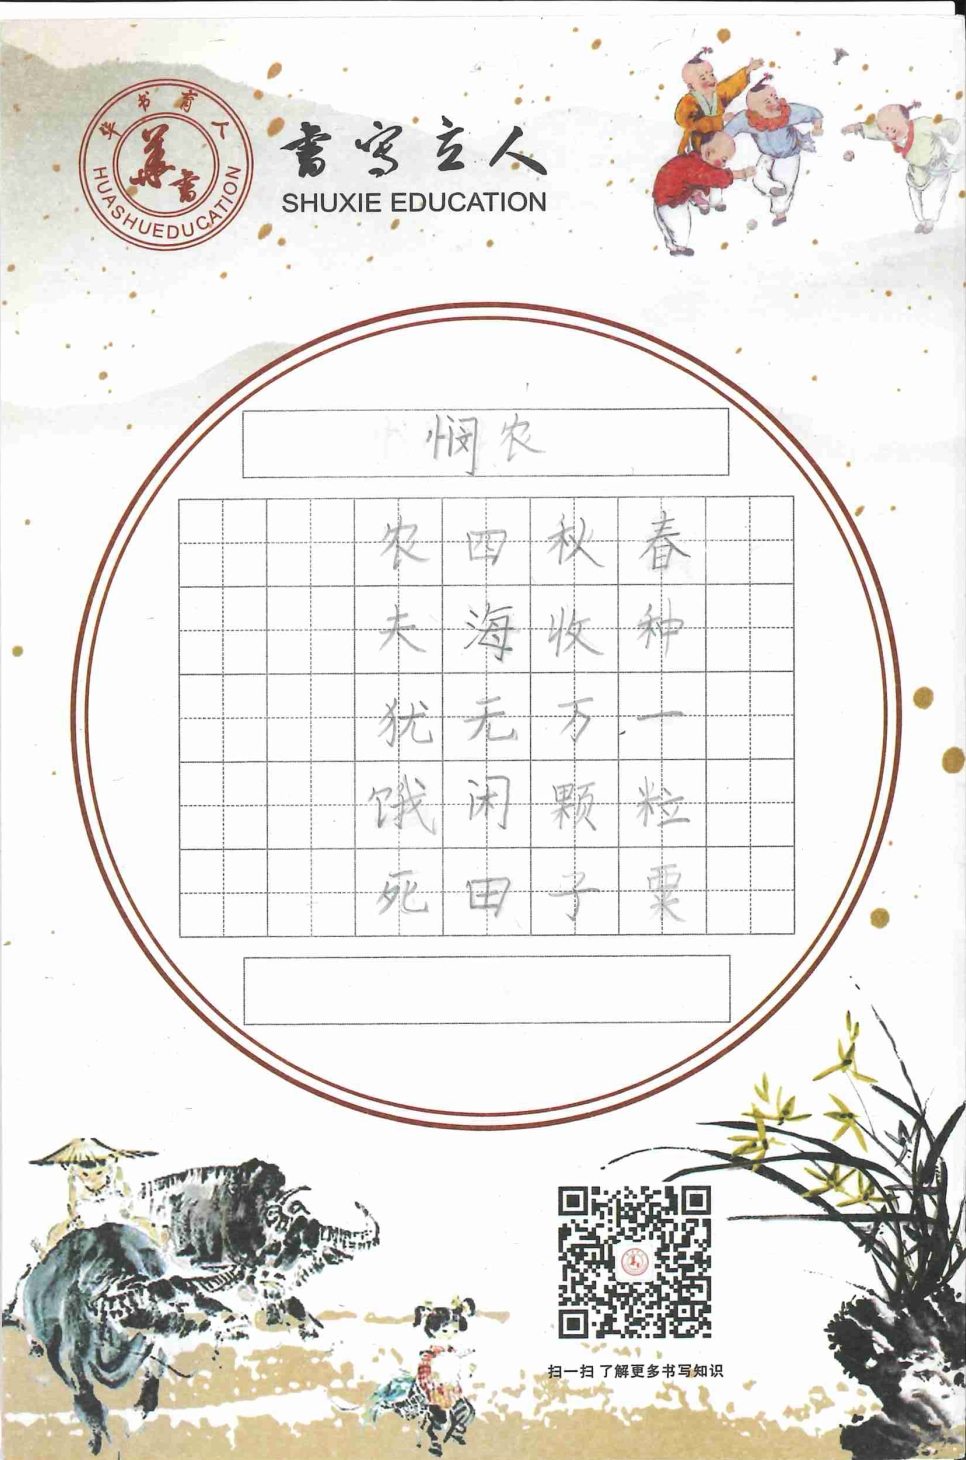 华书育人
華書
HUASHUEDUCATION
書写立人
SHUXIE EDUCATION
悯农
春种一粒粟
秋收万颗子
四海无闲田
农夫犹饿死
扫一扫 了解更多书写知识